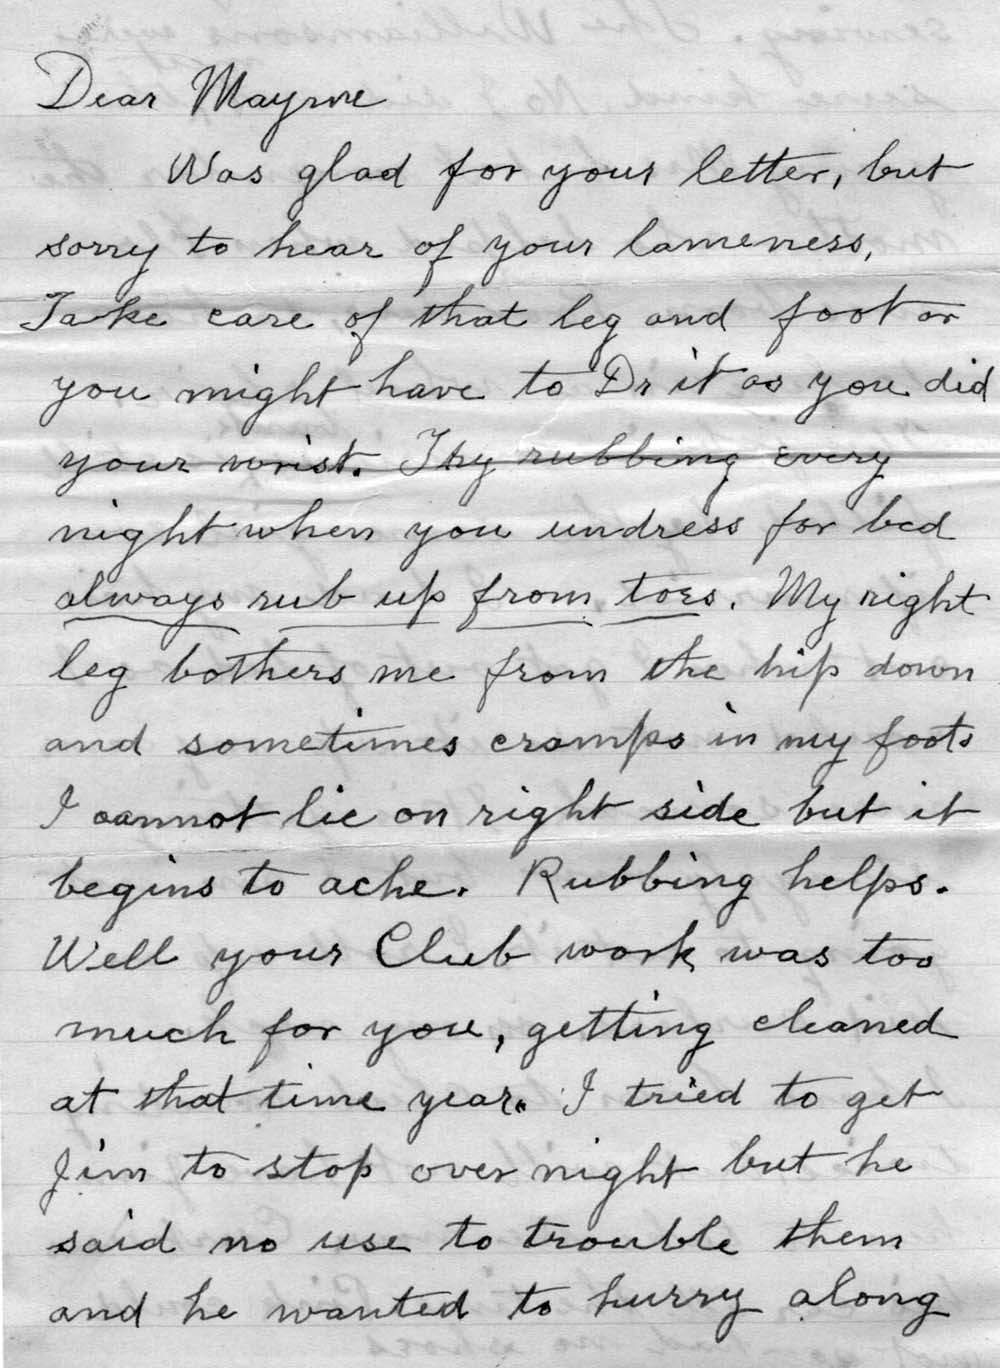 Dear Mayme
Was glad for your letter, but
sorry to hear of your lameness,
Take care of that leg and foot or
you might have to Dr it as you did
your wrist. Try rubbing every
night when you undress for bed
always rub up from toes. My right
leg bothers me from the hip down
and sometimes cramps in my foots
I cannot lie on right side but it
begins to ache. Rubbing helps.
Well your Club work was too
much for you, getting cleaned
at that time year. I tried to get
Jim to stop over night but he
said no use to trouble them
and he wanted to hurry along